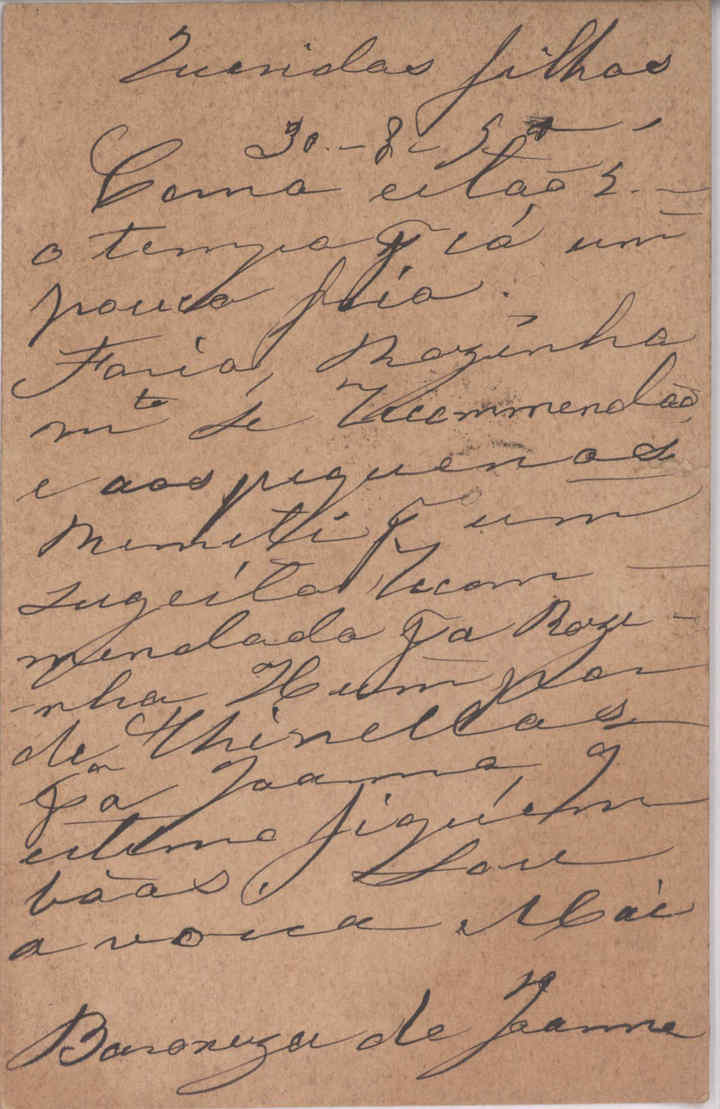 Queridas filhas
30-8-5
Como estão s.
o tempo p cá um
pouco frio.
Faria, Mozinha
mto se recommendão,
e aos piquenos
Remeti p um
sugeito recom
mendado pa Rozi-
nha Hum par
de Chinellas
pa Joanna, q
estimo fiquem
bôas, Sou
a vossa Mãi
Baroneza de Joanne